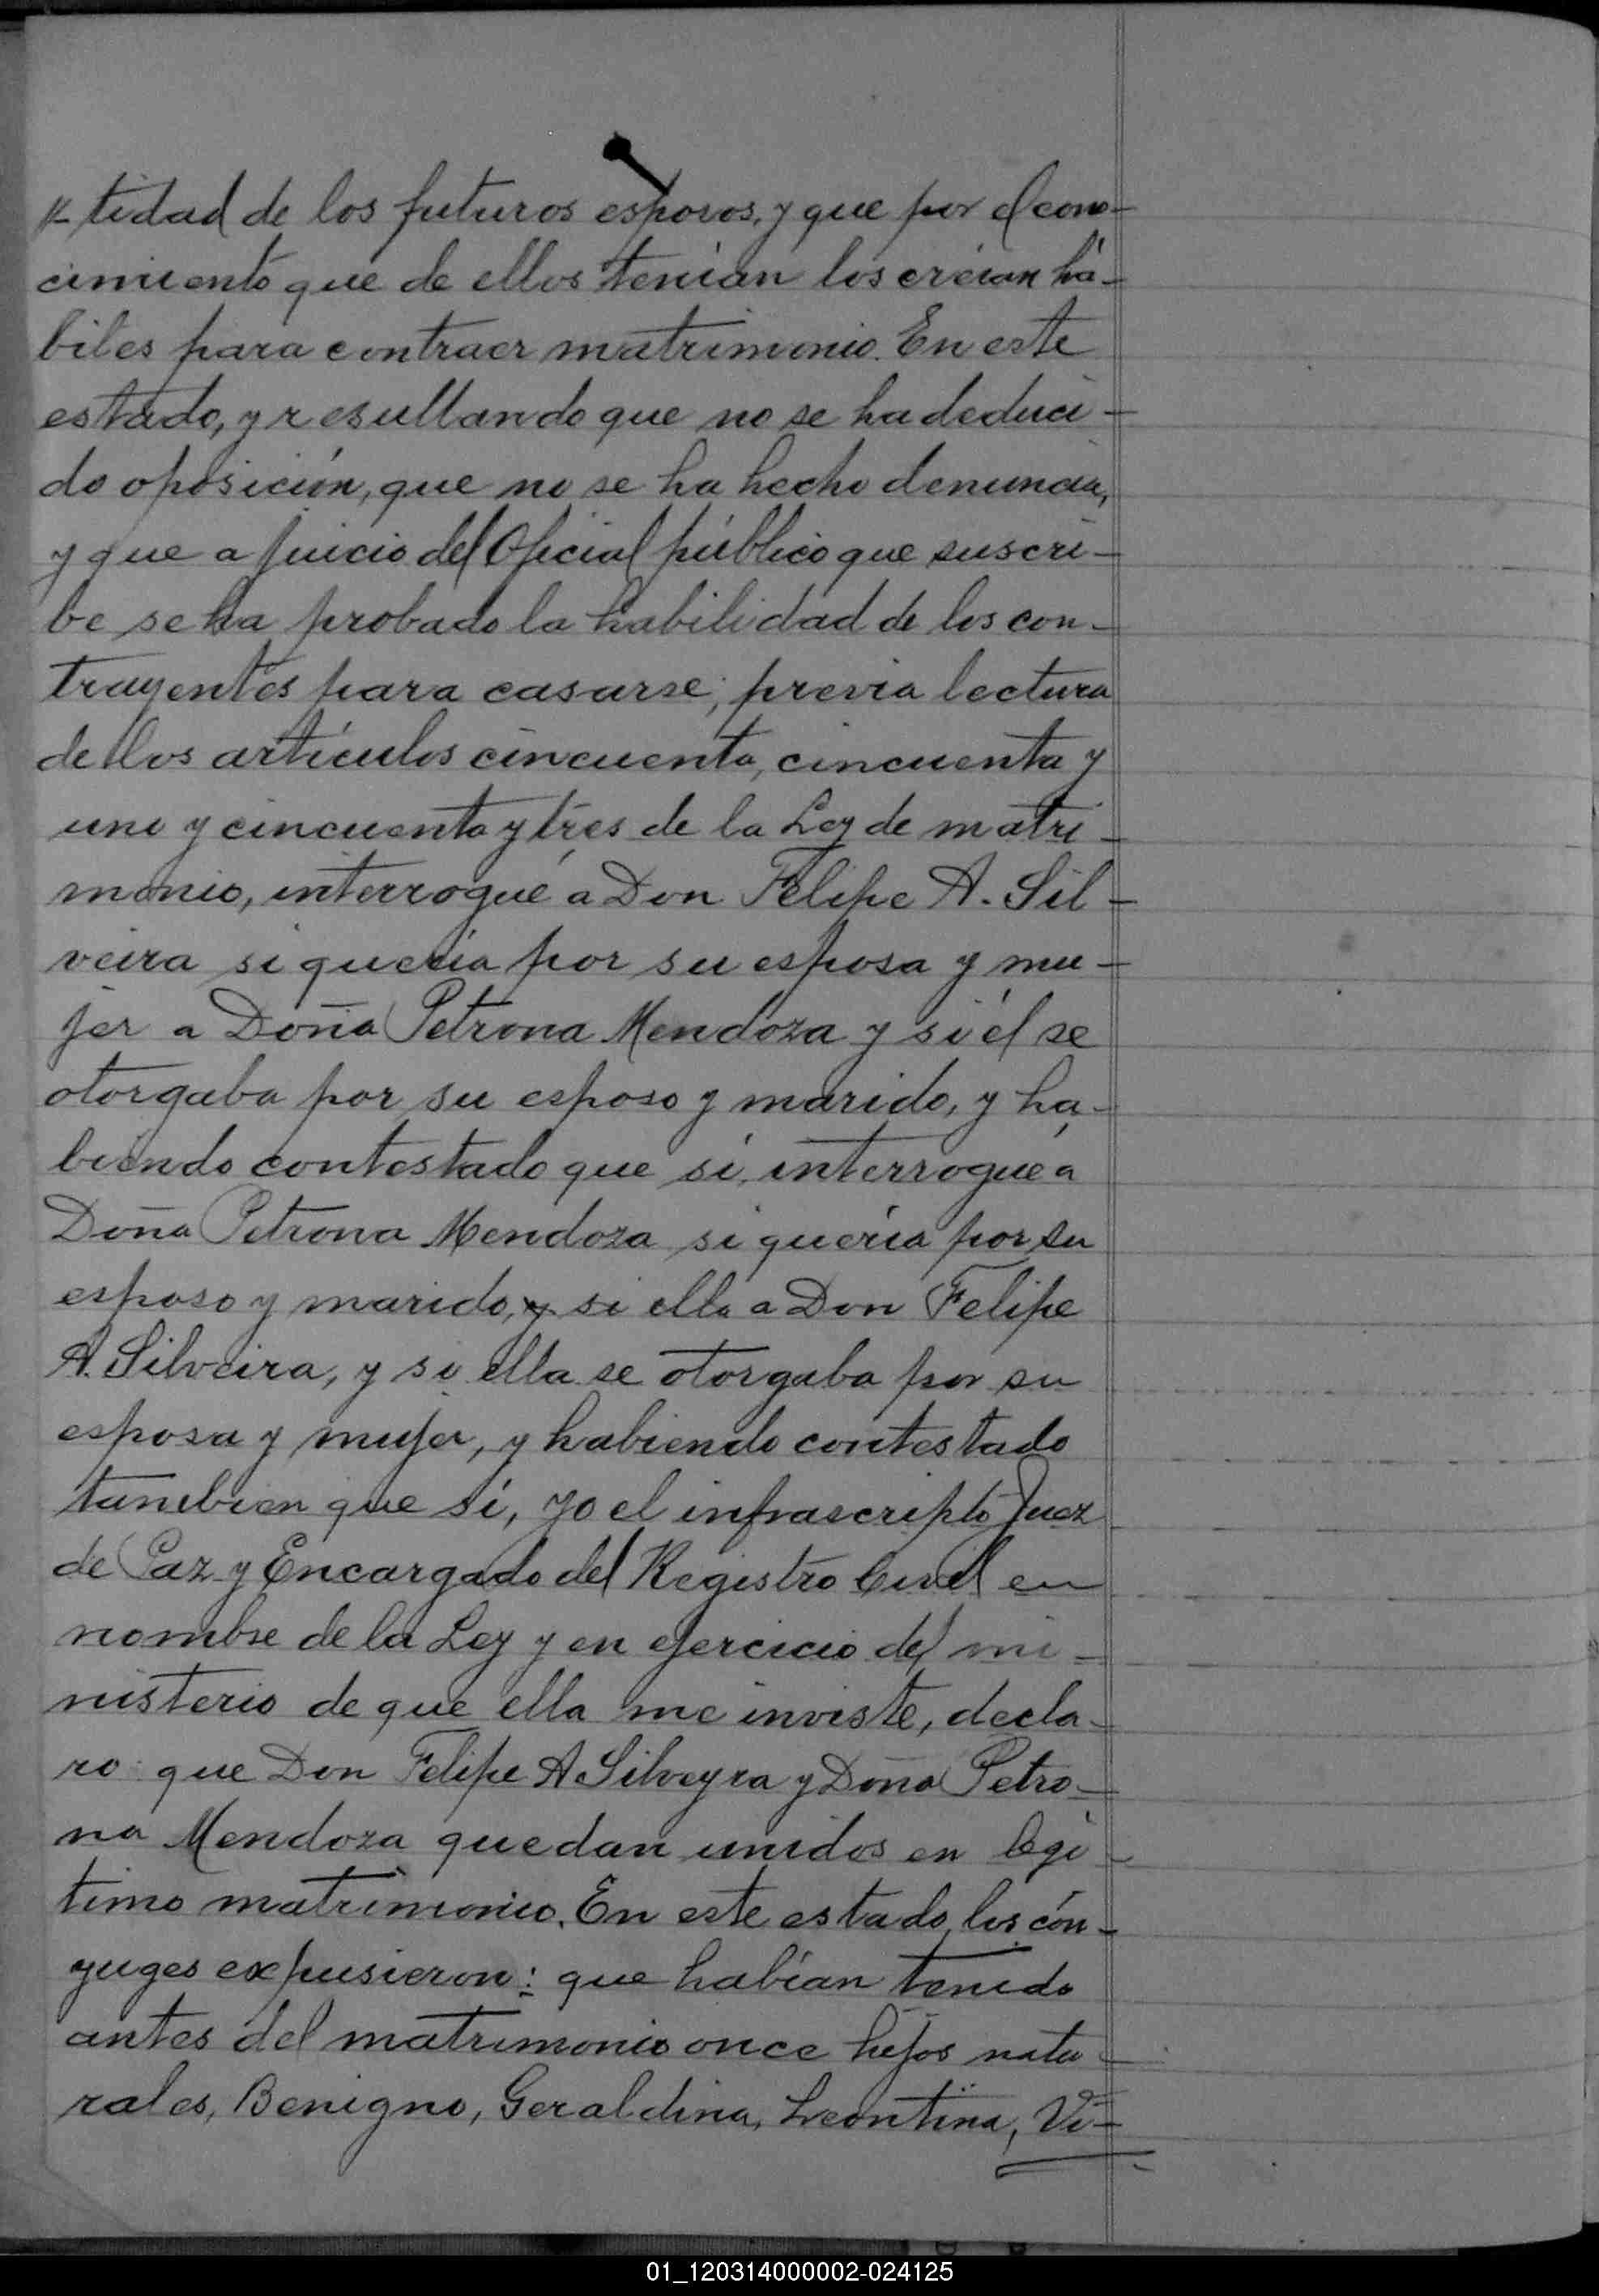 tidad de los futuros esposos, y que por el cono-
cimiento que de ellos tenían los creían há-
biles para contraer matrimonio. En este
estado, y resultando que no se ha deduci-
do oposición, que no se ha hecho denuncia,
y que a juicio del Oficial público que suscri-
be se ha probado la habilidad de los con-
trayentes para casarse; previa lectura
de los artículos cincuenta, cincuenta y
uno y cincuenta y tres de la Ley de matri-
monio, interrogué a Don Felipe A. Sil-
veira si quería por su esposa y mu-
jer a Doña Petrona Mendoza y si él se
otorgaba por su esposo y marido, y ha-
biendo contestado que sí, interrogué a
Doña Petrona Mendoza si quería por su
esposo y marido, y si ella a Don Felipe
A. Silveira, y si ella se otorgaba por su
esposa y mujer, y habiendo contestado
tambien que sí, yo el infrascripto Juez
de Paz y Encargado del Registro Civil en
nombre de la Ley y en ejercicio del mi-
nisterio de que ella me inviste, decla-
ro que Don Felipe A Silveyra y Doña Petro-
na Mendoza quedan unidos en legí-
timo matrimonio. En este estado, los cón-
yuges expusieron: que habían tenido
antes del matrimonio once hijos natu-
rales, Benigno, Geraldina, Leontina, Vi-
01_120314000002-024125